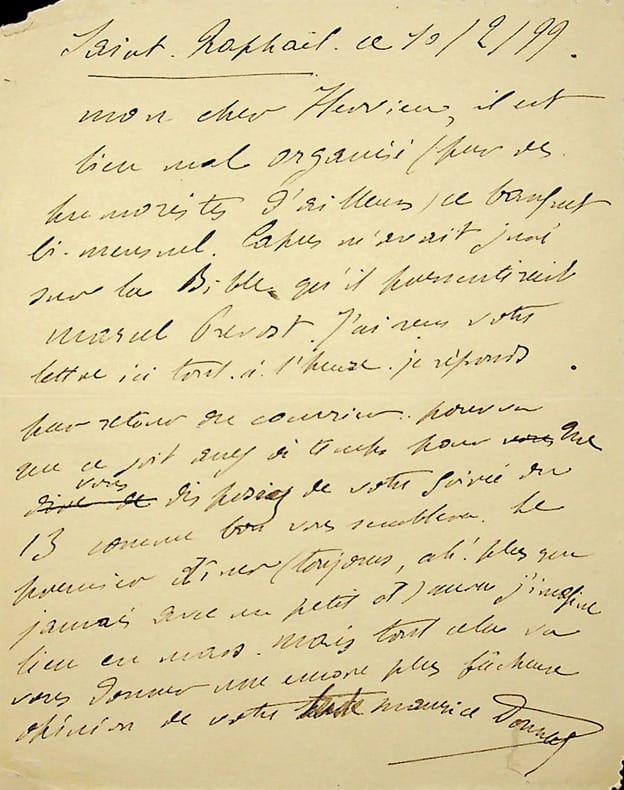 Saint-Raphaël. ce 10/2/99.
mon cher Hervieu, il est
bien mal organisé (par des
humoristes d'ailleurs) ce banquet
bi-mensuel. Capus m'avait juré
sur la Bible qu'il préviendrait
Marcel Prévost. J'ai reçu votre
lettre ici tout à l'heure. je réponds
par retour du courrier. pourvu
que ce soit assez à temps pour vous que
dire de vous disposiez de votre soirée du
13 comme bon vous semblera. Le
premier dîner (toujours, ah! plus que
jamais avec un petit d) aura j'imagine
lieu en mars. mais tout cela va
vous donner une encore plus fâcheuse
opinion de votre Maurice Donnay